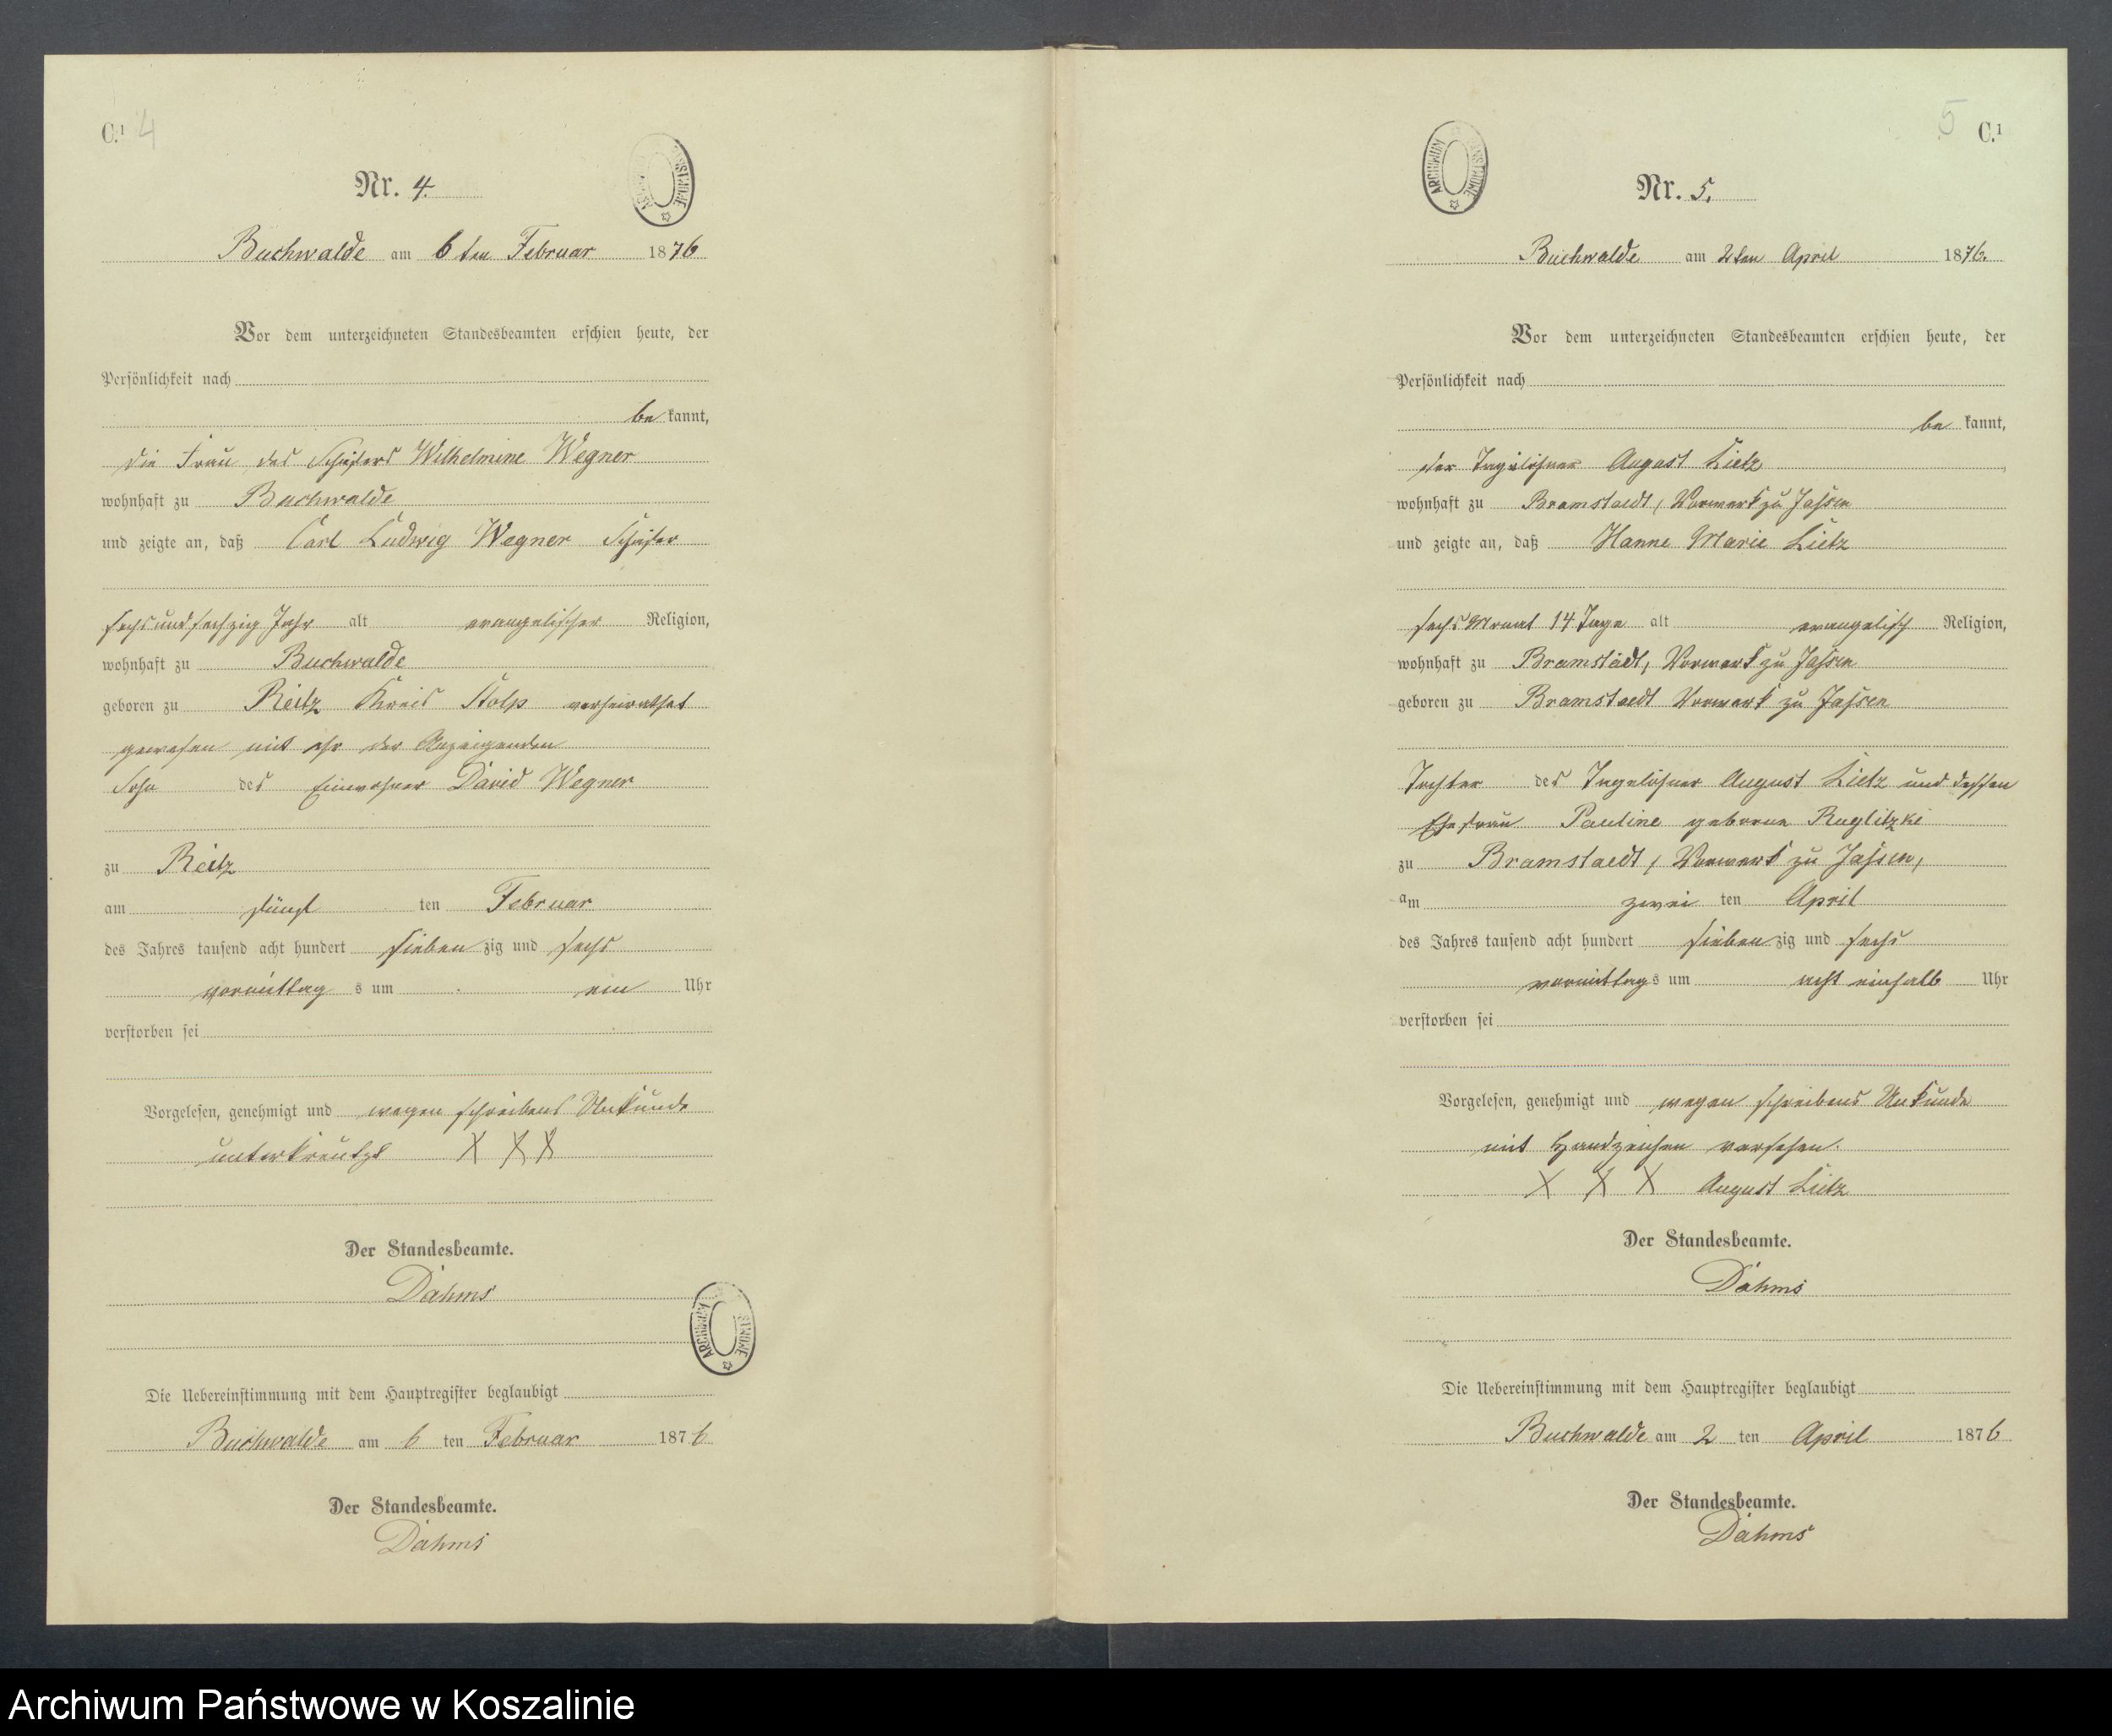 C.¹ 4
Nr. 4.
ARCHIWUM PAŃSTWOWE
Buchwalde am 6 ten Februar 1876
Vor dem unterzeichneten Standesbeamten erschien heute, der
Persönlichkeit nach
be kannt,
die Frau des Schäfers Wilhelmine Wegner
wohnhaft zu Buchwalde
und zeigte an, daß Carl Ludwig Wegner Schäfer
sechsundsechzig Jahr alt evangelischer Religion,
wohnhaft zu Buchwalde
geboren zu Reitz Kreis Stolp verheirathet
gewesen mit ihr der Anzeigenden
Sohn des Einwohner David Wegner
zu Reitz
am ten Februar
des Jahres tausend acht hundert sieben zig und sechs
vormittag s um ein Uhr
verstorben sei
Vorgelesen, genehmigt und wegen schreibens Unkunde
unterkreutzt X X X
Der Standesbeamte.
Dahms
ARCHIWUM PAŃSTWOWE
Die Uebereinstimmung mit dem Hauptregister beglaubigt
Buchwalde am 6 ten Februar 1876
Der Standesbeamte.
Dahms
5 C.¹
ARCHIWUM PAŃSTWOWE
Nr. 5.
Buchwalde am 2ten April 1876.
Vor dem unterzeichneten Standesbeamten erschien heute, der
Persönlichkeit nach
be kannt,
der Tagelöhner August Lietz
wohnhaft zu Bramstaedt, Vorwerk zu Jassen
und zeigte an, daß Hanne Marie Lietz
sechs Monat 14 Tage alt evangelisch Religion,
wohnhaft zu Bramstädt, Vorwerk zu Jassen
geboren zu Bramstaedt Vorwerk zu Jassen
Tochter des Tagelöhner August Lietz und dessen
Ehefrau Pauline geborene Ruglitzki
zu Bramstaedt, Vorwerk zu Jassen,
am zwei ten April
des Jahres tausend acht hundert sieben zig und sechs
vormittag s um acht einhalb Uhr
verstorben sei
Vorgelesen, genehmigt und wegen schreibens Unkunde
mit Handzeichen versehen.
X X X August Lietz
Der Standesbeamte.
Dahms
Die Uebereinstimmung mit dem Hauptregister beglaubigt
Buchwalde am 2 ten April 1876
Der Standesbeamte.
Dahms
Archiwum Państwowe w Koszalinie